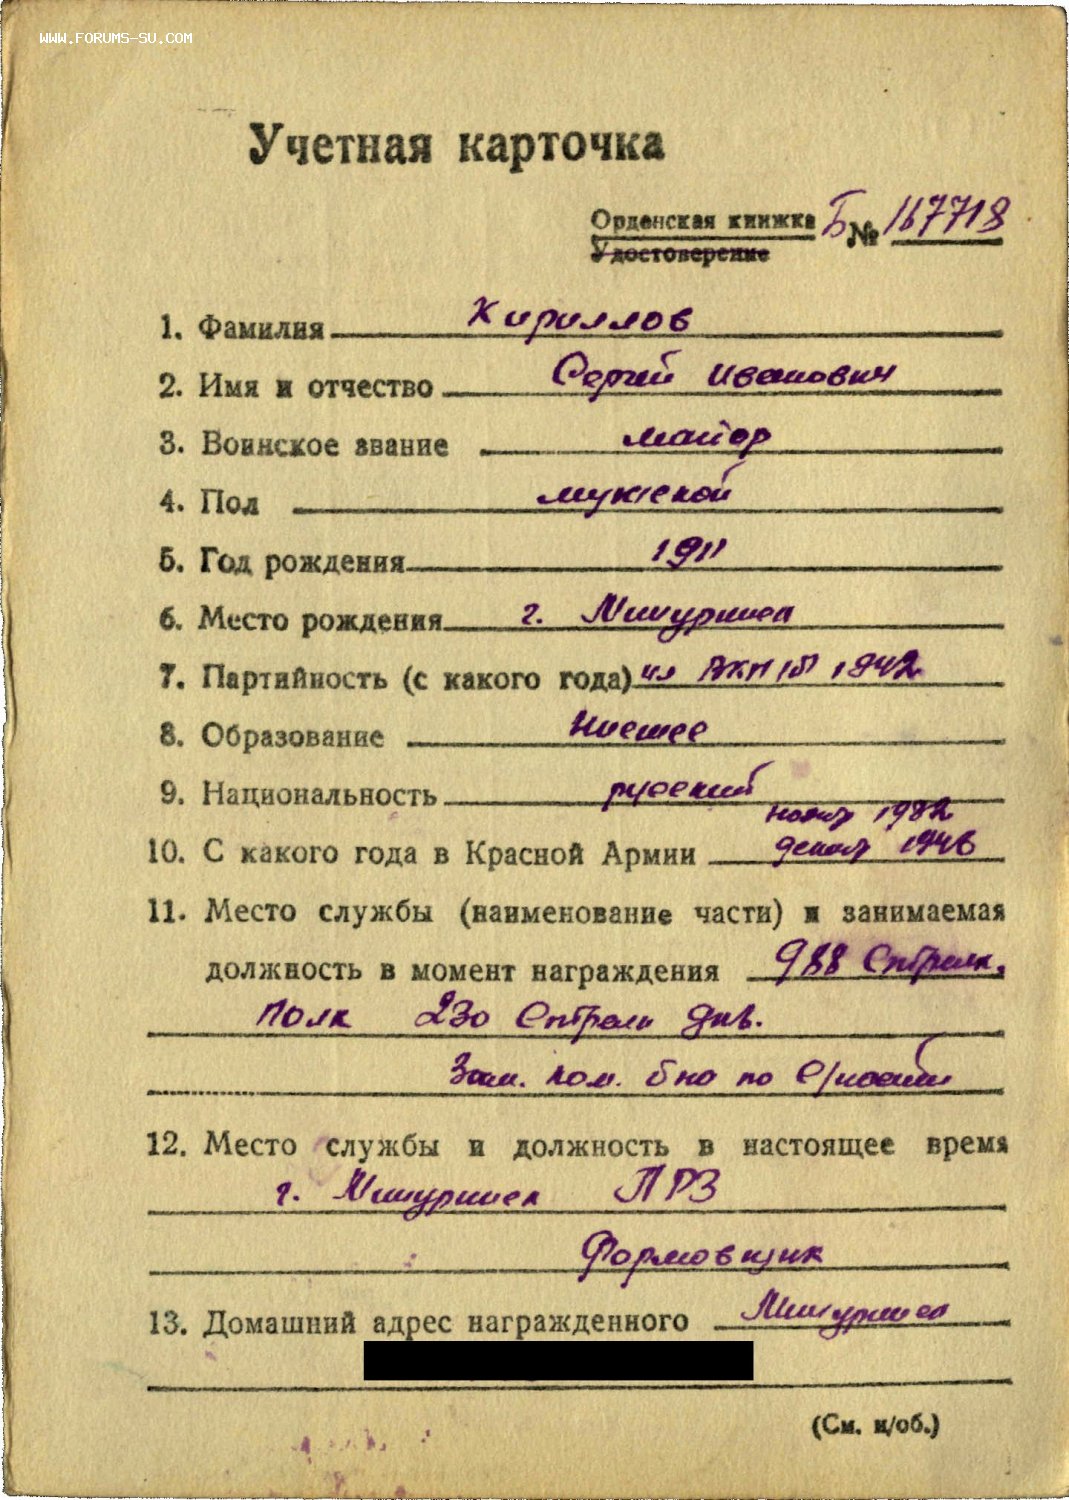 WWW.FORUMS-SU.COM
Учетная карточка
Орденская книжка Б № 167718
Удостоверение
1. Фамилия Кириллов
2. Имя и отчество Сергей Иванович
3. Воинское звание майор
4. Пол мужской
5. Год рождения 1911
6. Место рождения г. Мичуринск
7. Партийность (с какого года) чл ВКП(б) 1942
8. Образование Низшее
9. Национальность русский
1932
10. С какого года в Красной Армии декабр 1946
11. Место службы (наименование части) и занимаемая
должность в момент награждения 988 Стрелк.
полк 230 Стрелк див.
Зам. ком. б-на по
12. Место службы и должность в настоящее время
г. Мичуринск ПРЗ
Формовщик
13. Домашний адрес награжденного Мичуринск
(См. н/об.)